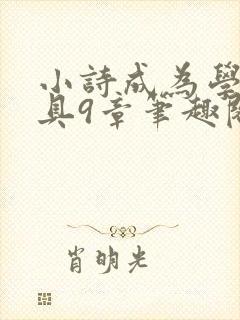 小詩成為學
具9章筆趣閣
肖明光